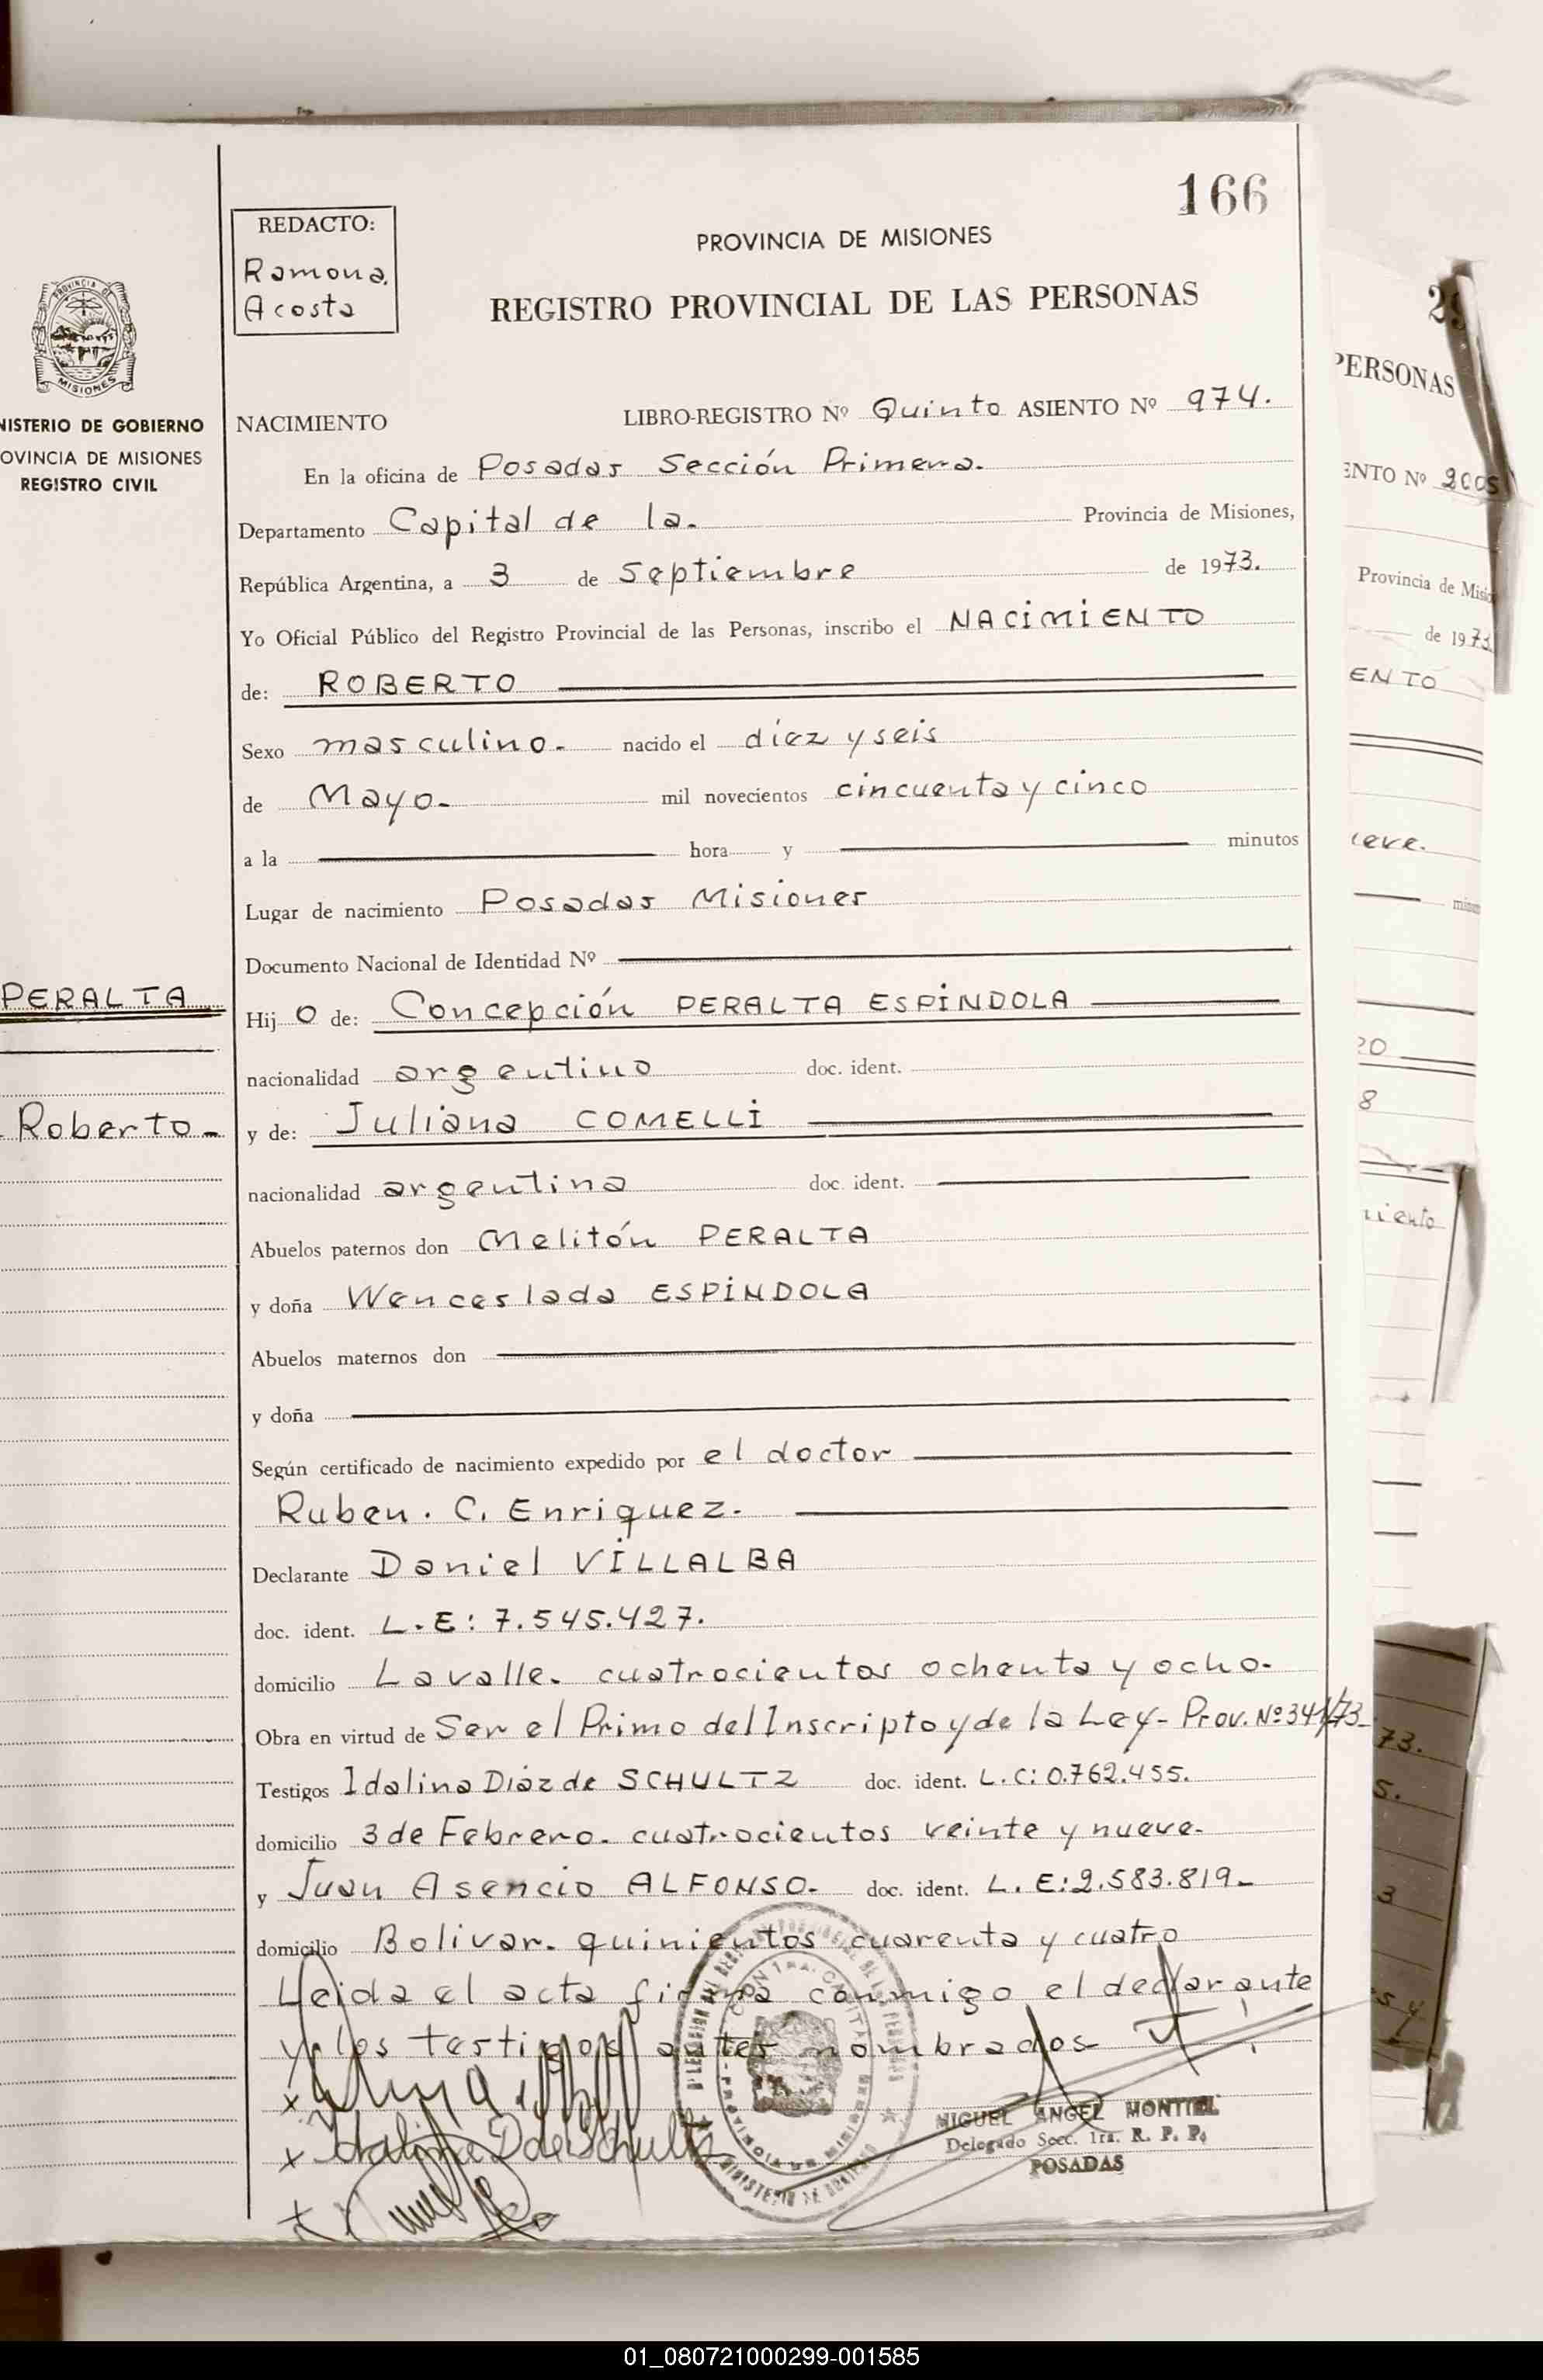 166
REDACTO:
Ramona.
Acosta
PROVINCIA DE MISIONES
REGISTRO PROVINCIAL DE LAS PERSONAS
PROVINCIA DE
MISIONES
NISTERIO DE GOBIERNO
OVINCIA DE MISIONES
REGISTRO CIVIL
NACIMIENTO LIBRO-REGISTRO Nº Quinto ASIENTO Nº 974.
En la oficina de Posadas Sección Primera.
Departamento Capital de la. Provincia de Misiones,
República Argentina, a 3 de Septiembre de 1973.
Yo Oficial Público del Registro Provincial de las Personas, inscribo el NACIMIENTO
de: ROBERTO
Sexo masculino.- nacido el diez y seis
de Mayo.- mil novecientos cincuenta y cinco
a la hora y minutos
Lugar de nacimiento Posadas Misiones
Documento Nacional de Identidad Nº
PERALTA
Hij o de: Concepción PERALTA ESPÍNDOLA
nacionalidad argentino doc. ident.
Roberto.-
y de: Juliana COMELLI
nacionalidad argentina doc. ident.
Abuelos paternos don Melitón PERALTA
y doña Wenceslada ESPÍNDOLA
Abuelos maternos don
y doña
Según certificado de nacimiento expedido por el doctor
Ruben. C. Enriquez.
Declarante Daniel VILLALBA
doc. ident. L.E: 7.545.427.
domicilio Lavalle. cuatrocientos ochenta y ocho.
Obra en virtud de Ser el Primo del Inscripto y de la Ley- Prov. Nº 341/73-
Testigos Idalina Diáz de SCHULTZ doc. ident. L.C: 0.762.455.
domicilio 3 de Febrero. cuatrocientos veinte y nueve.
y Juan Asencio ALFONSO. doc. ident. L.E: 2.583.819-
domicilio Bolivar. quinientos cuarenta y cuatro
Leida el acta firma conmigo el declarante
y los testigos antes nombrados-
Idalina D de Schultz
MIGUEL ANGEL MONTIEL
Delegado Secc. 1ra. R. P. P.
POSADAS
PERSONAS
ENTO Nº 2005
Provincia de Misio
de 1973
ENTO
eve.
minu
20
8
iento
73.
5.
3
01_080721000299-001585